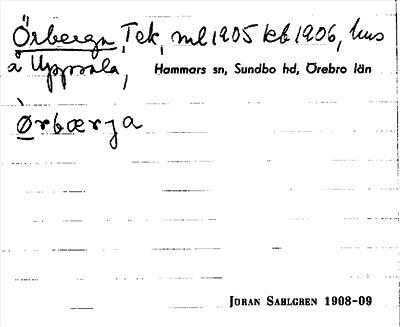 Örbergn, Tek, ml 1905 kb 1906, hus
å Uppsala, Hammars sn, Sundbo hd, Örebro län
Ørbærja
JÖRAN SAHLGREN 1908-09